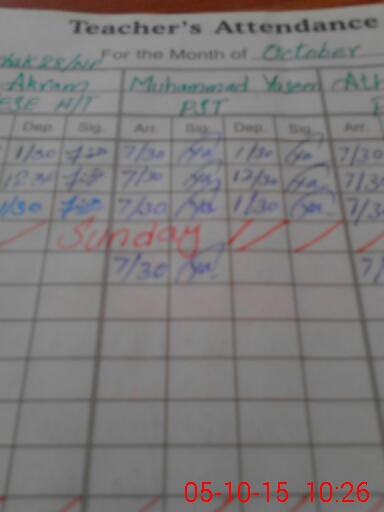 Teacher's Attendance
For the Month of October
Akram Muhammad Yaseen
ESE H/T PST
Dep. Sig. Arr. Sig. Dep. Sig. Arr.
1/30 7/30 1/30 7/30
12/30 7/30 12/30 7/3
1/30 7/30 1/30 7/3
Sunday
7/30 7/
05-10-15 10:26